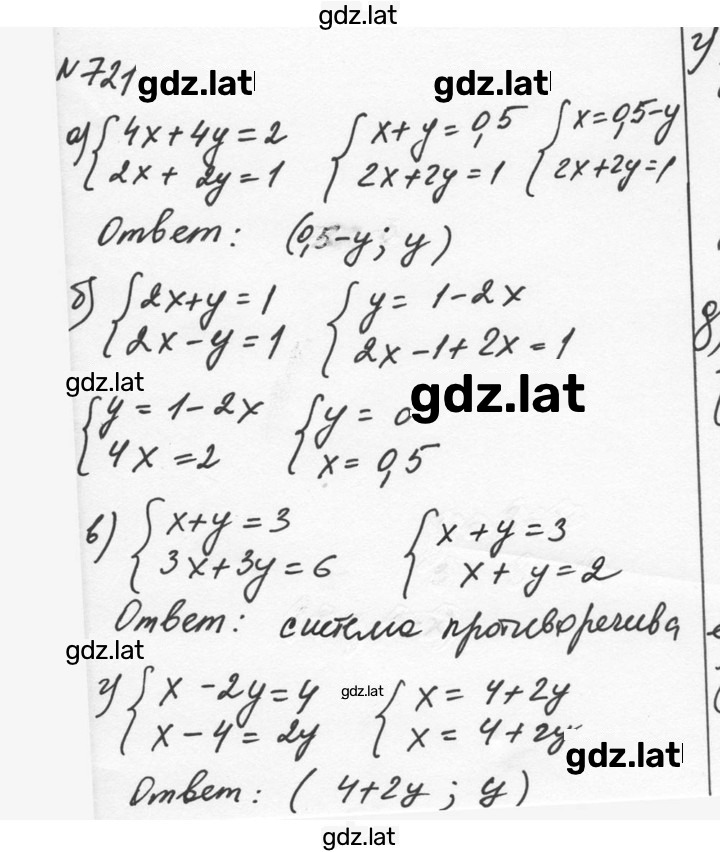 gdz.lat
N 721
gdz.lat gdz.lat
а) { 4x + 4y = 2 { x + y = 0,5 { x = 0,5 - y
2x + 2y = 1 2x + 2y = 1 2x + 2y = 1
Ответ: (0,5 - y; y)
б) { 2x + y = 1 { y = 1 - 2x
2x - y = 1 2x - 1 + 2x = 1
gdz.lat gdz.lat
{ y = 1 - 2x { y = 0
4x = 2 x = 0,5
в) { x + y = 3 { x + y = 3
3x + 3y = 6 x + y = 2
Ответ: система противоречива
gdz.lat
г) { x - 2y = 4 gdz.lat { x = 4 + 2y
x - 4 = 2y x = 4 + 2y
gdz.lat
Ответ: ( 4 + 2y ; y )
gdz.lat